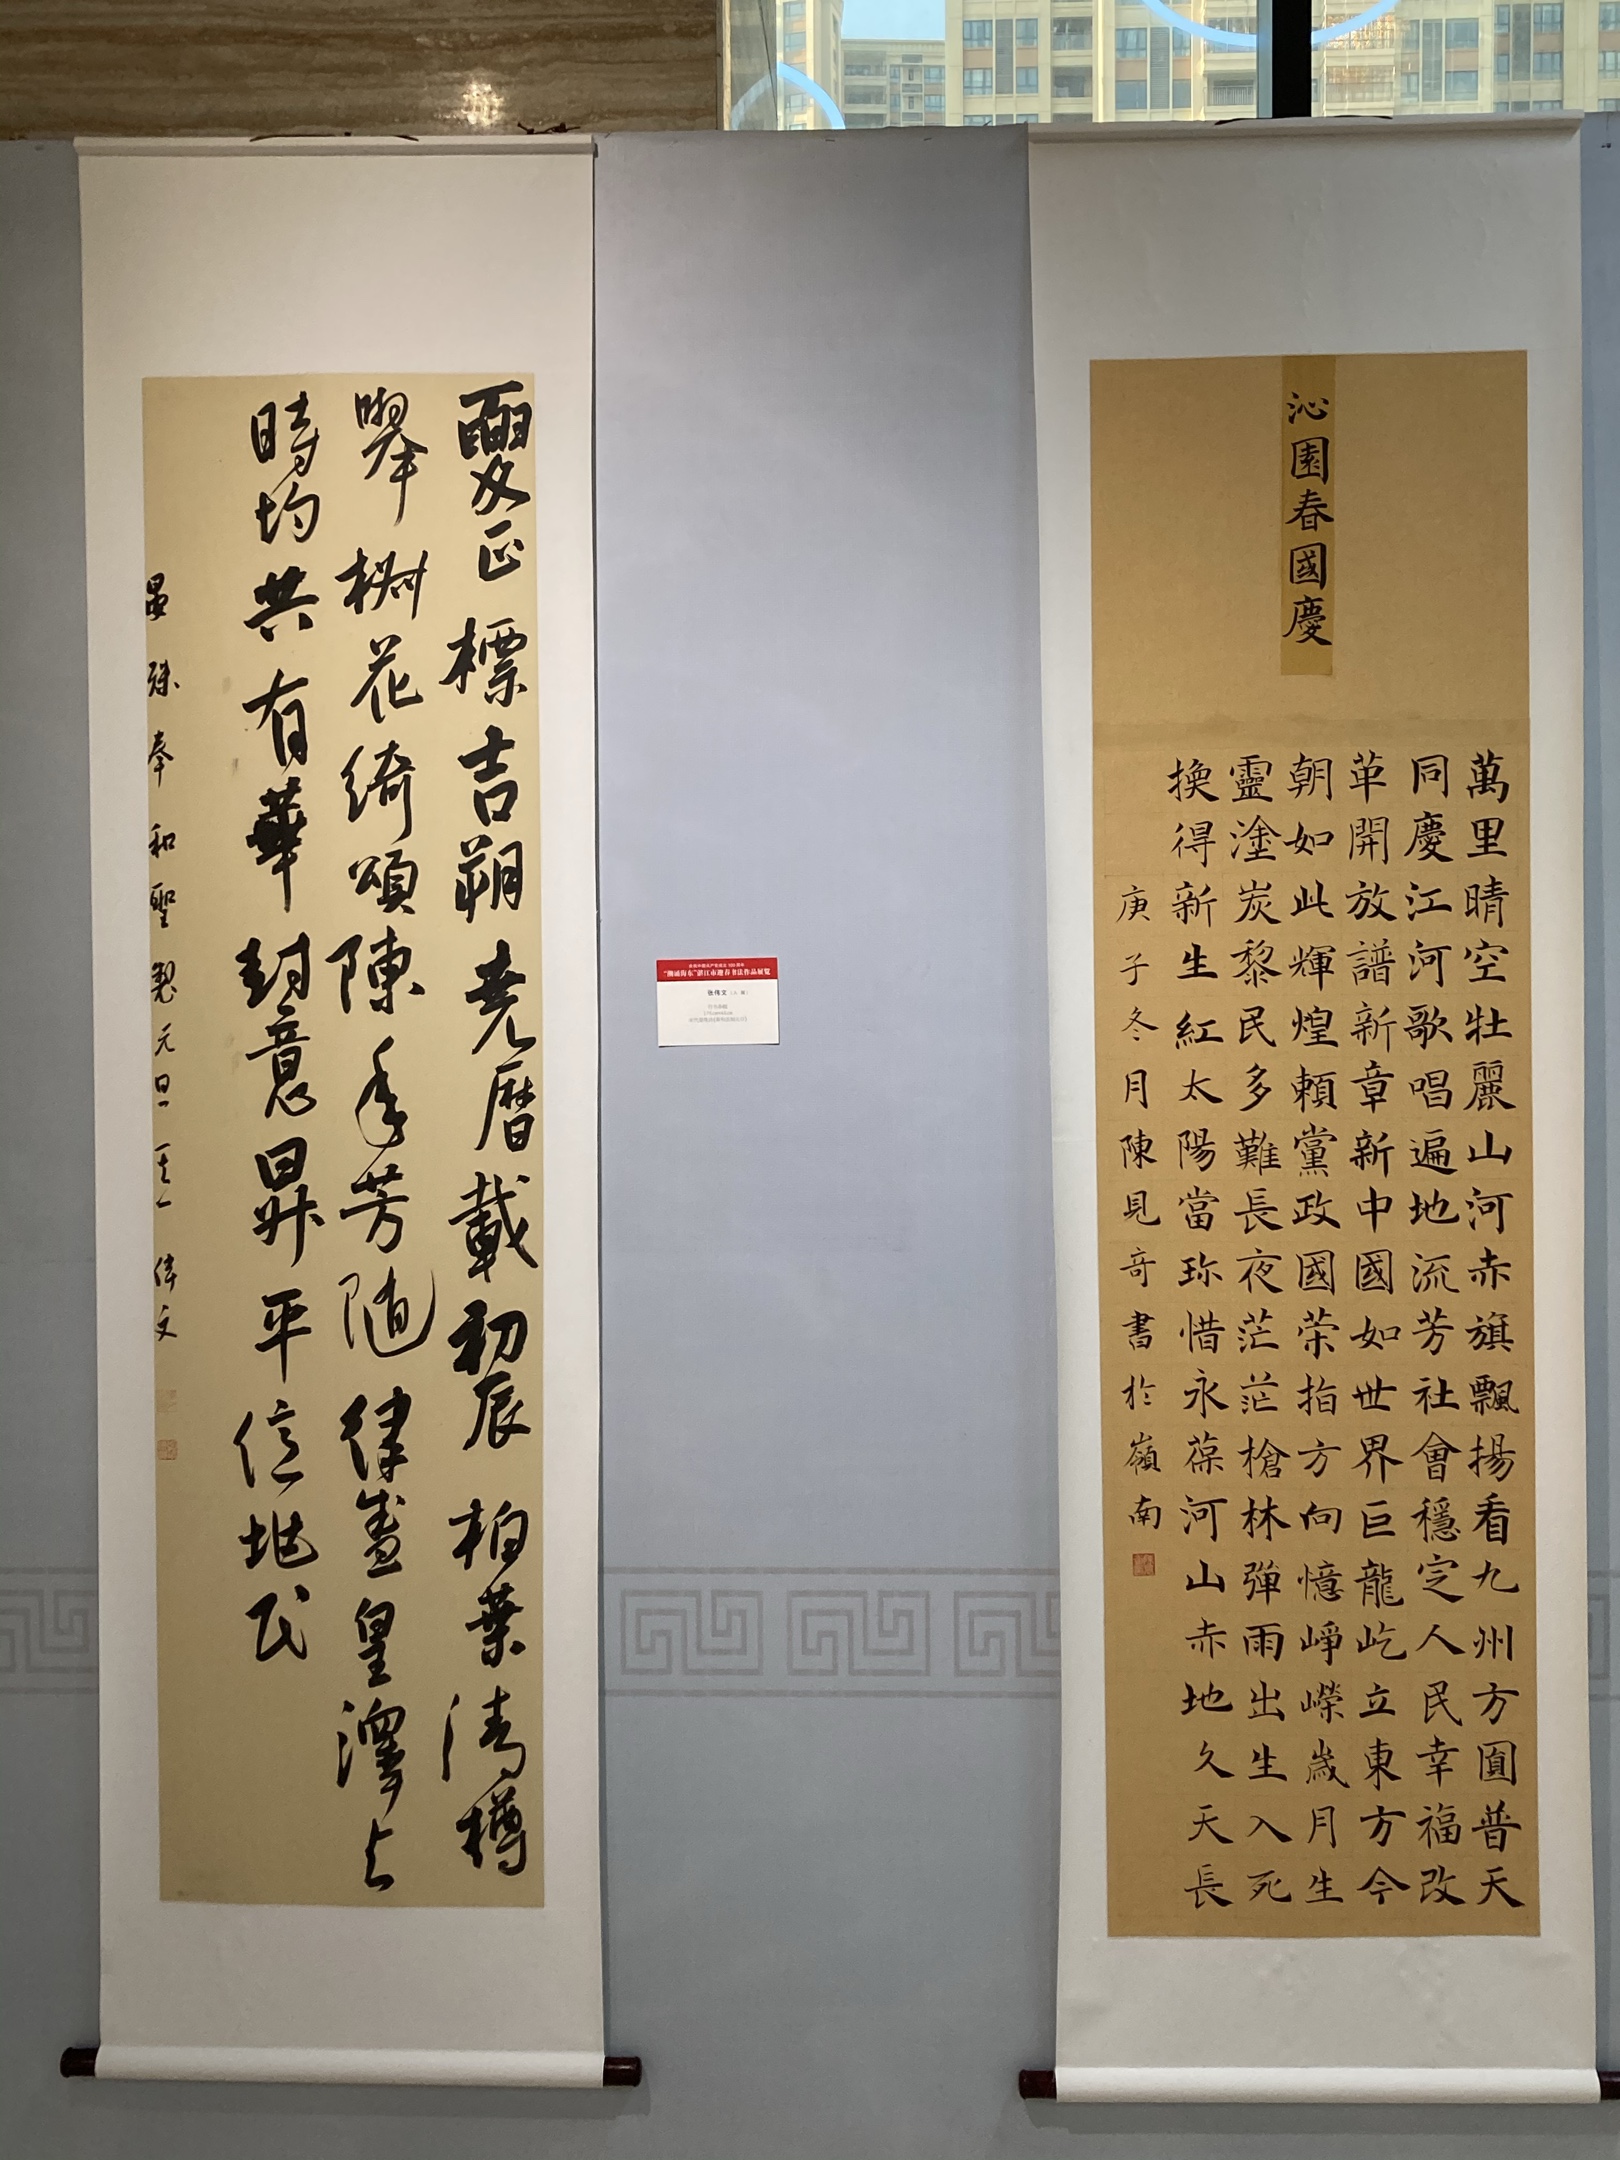 沁園春國慶
萬里晴空牡麗山河赤旗飄揚看九州方圓普天
同慶江河歌唱遍地流芳社會穩定人民幸福改
革開放譜新章新中國如世界巨龍屹立東方今
朝如此輝煌賴黨政國荣指方向憶崢嶸歲月生
靈塗炭黎民多難長夜茫茫槍林彈雨出生入死
換得新生紅太陽當珍惜永葆河山赤地久天長
庚子冬月陳見奇書於嶺南
庆祝中国共产党成立100周年
“潮涌海东”湛江市迎春书法作品展览
张伟文
夏正標吉朔堯曆載初辰柏葉清樽
舉椒花綺頌陳年芳随律盛皇澤与
時均共有華封意昇平億兆民
晏殊奉和聖製元旦 偉文